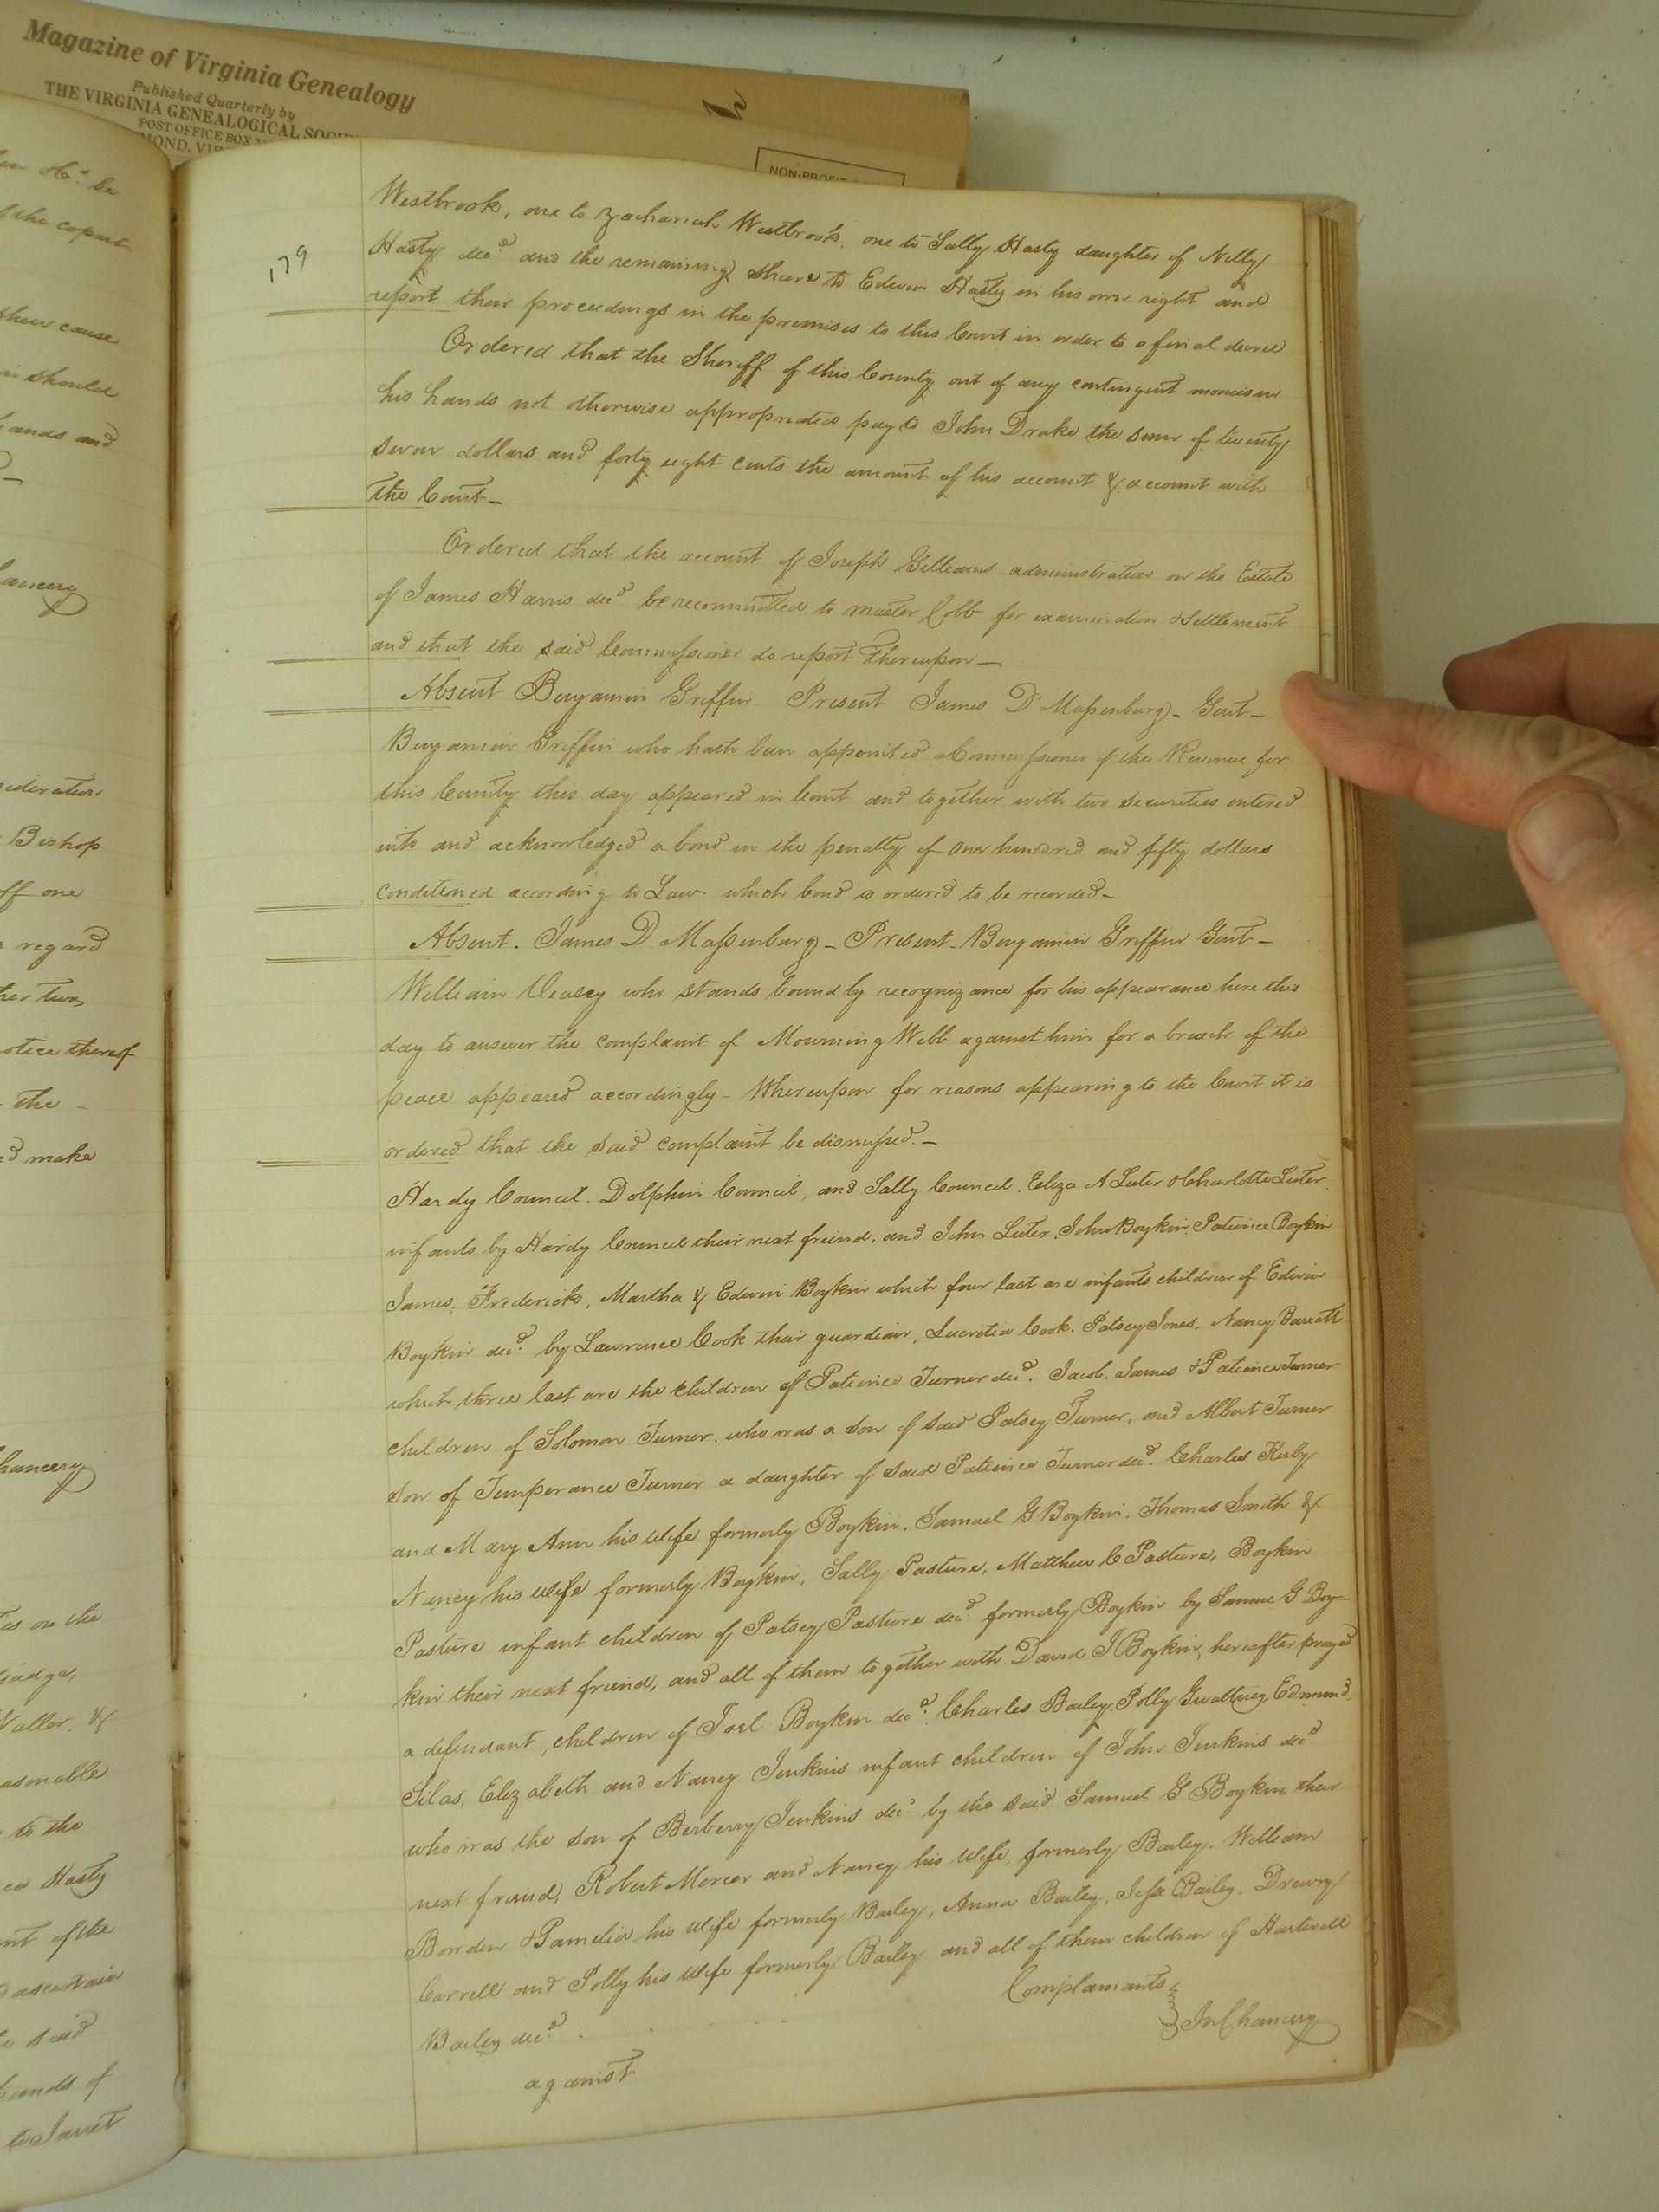 Magazine of Virginia Genealogy
Published Quarterly by
THE VIRGINIA GENEALOGICAL
POST OFFICE BOX
NON-PROFIT
be
of the copart
their cause
should
hands and
hancery
Bishop
off one
regard
two
notice thereof
the
make
hancery
on the
judge,
Waller, &
easonable
to the
Hasty
ascertain
said
hands of
to Jarret
179
Westbrook, one to Zachariah Westbrook. one to Sally Hasty daughter of Nelly
Hasty decd and the remaining share to Edwin Hasty in his own right and
report their proceedings in the premises to this Court in order to a final decree
Ordered that the Sheriff of this County out of any contingent monies in
his hands not otherwise appropriated pay to John Drake the sum of twenty
seven dollars and forty eight cents the amount of his account & account with
the Court_
Ordered that the account of Joseph Gilliams administration on the Estate
of James Harris decd be recommitted to master Cobb for examination & Settlement
and that the said Commissioner do report thereupon_
Absent Benjamin Griffin Present James D Massenburg_ Gent_
Benjamin Griffin who hath been appointed a Commissioner of the Revenue for
this County this day appeared in Court and together with two securities entered
into and acknowledged a bond in the penalty of One hundred and fifty dollars
conditioned according to Law which bond is ordered to be recorded_
Absent. James D Massenburg_ Present_ Benjamin Griffin Gent_
William Veasey who stands bound by recognizance for his appearance here this
day to answer the complaint of Mourning Webb against him for a breach of the
peace appeared accordingly_ Whereupon for reasons appearing to the Court it is
ordered that the said complaint be dismissed._
Hardy Council. Dolphin Council, and Sally Council. Eliza A Luter & Charlotte Luter
infants by Hardy Council their next friend, and John Luter. John Boykin. Patience Boykin
James, Frederick, Martha & Edwin Boykin which four last are infants children of Edwin
Boykin decd. by Lawrence Cook their guardian, Lucretia Cook. Patsey Jones, Nancy Barrett
which three last are the children of Patience Turner decd. Jacob, James & Patience Turner
children of Solomon Turner, who was a son of said Patsey Turner, and Albert Turner
son of Temperance Turner a daughter of said Patience Turner decd. Charles Kerby
and Mary Ann his wife formerly Boykin, Samuel G Boykin. Thomas Smith &
Nancy his wife formerly Boykin, Sally Pasture, Matthew C Pasture, Boykin
Pasture infant children of Patsey Pasture decd. formerly Boykin by Samuel G Boy-
kin their next friend, and all of them together with David J Boykin, hereafter prayed
a defendant, children of Joel Boykin decd. Charles Bailey, Polly Gwaltney, Edmund,
Silas, Elizabeth and Nancy Jenkins infant children of John Jenkins decd
who was the son of Berberry Jenkins decd by the said Samuel G Boykin their
next friend, Robert Mercer and Nancy his wife, formerly Bailey. William
Bowden & Pamelia his wife formerly Bailey, Anna Bailey, Jesse Bailey, Drewry
Carrell and Polly his wife formerly Bailey and all of them children of Hartwell
Bailey decd.
Complainants
In Chancery
against